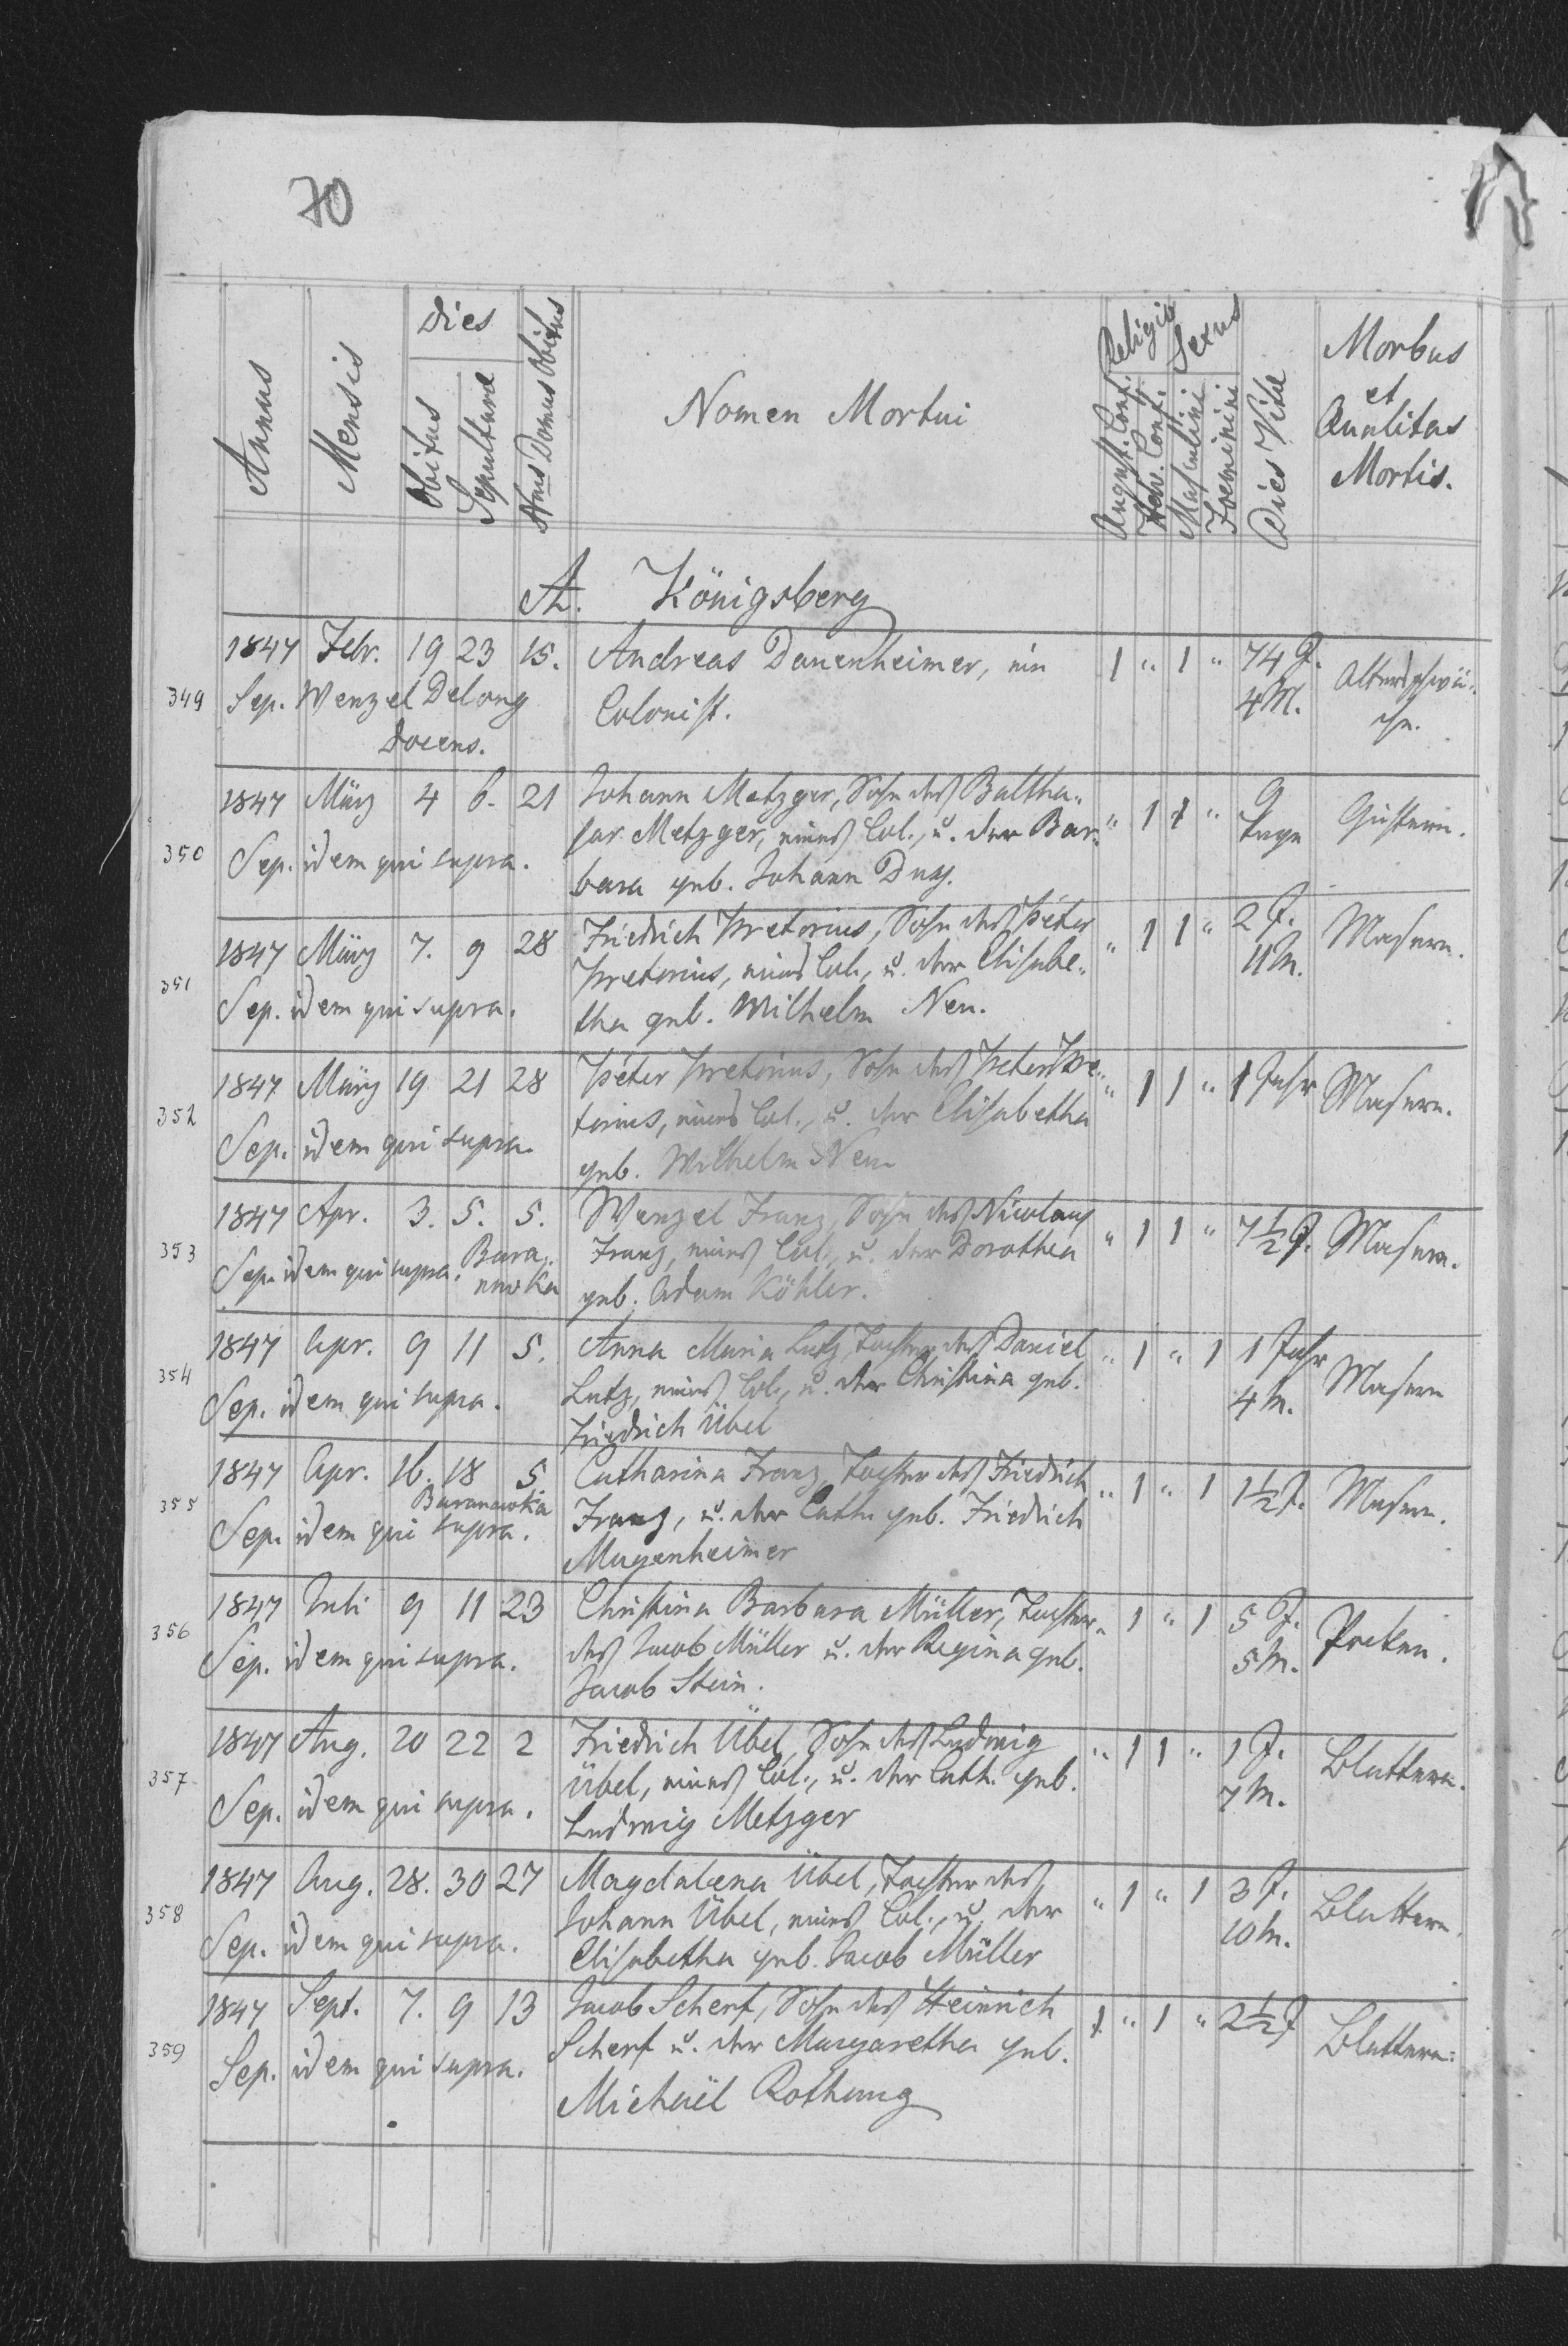 70
Annus
Mensis
Dies
Obitus
Sepulturæ
Nrus Domus Obitus
Nomen Mortui
Religio
August. Conf.
Helv. Conf.
Sexus
Masculini
Foeminini
Dies Vitæ
Morbus
et
Qualitas
Mortis.
A. Königsberg
349
1847 Febr. 19 23 15. Andreas Danenheimer, ein 1 " 1 " 74 J. Altersschwä-
Sep. Wenzel Delong Colonist. 4 M. che.
Docens.
350
1847 März 4 6. 21 Johann Metzger, Sohn des Baltha- " 1 1 " 9 
sar Metzger, eines Col., u. der Bar- Tage
Sep. idem qui supra. bara geb. Johann
351
1847 März 7. 9 28 Friedrich Pretorius, Sohn des Peter " 1 1 " 2 J. Masern.
Pretorius, eines Col., u. der Elisabe- 11 M.
Sep. idem qui supra. tha geb. Wilhelm Neu.
352
1847 März 19 21 28 Peter Pretorius, Sohn des Peter Pre- " 1 1 " 1 Jahr Masern.
torius, eines Col., u. der Elisabetha
Sep. idem qui supra. geb. Wilhelm Neu
353
1847 Apr. 3. 5. 5. Wenzel Franz, Sohn des Nicolaus " 1 1 " 7½ J. Masern.
Sep. idem qui supra. Bara- Franz, eines Col., u. der Dorothea
nowka geb. Adam Köhler.
354
1847 Apr. 9 11 5. Anna Maria Lutz, Tochter des Daniel " 1 " 1 1 Jahr Masern
Lutz, eines Col., u. der Christina geb. 4 M.
Sep. idem qui supra. Friedrich Übel
355
1847 Apr. 16. 18 5 Catharina Franz, Tochter des Friedrich " 1 " 1 1½ J. Masern.
Baranowka
Sep. idem qui supra. Franz, u. der Cath. geb. Friedrich
Magenheimer
356
1847 Juli 9 11 23 Christina Barbara Müller, Tochter " 1 " 1 5 J. Pocken.
Sep. idem qui supra. des Jacob Müller u. der Regina geb. 5 M.
Jacob Stein.
357
1847 Aug. 20 22 2 Friedrich Übel, Sohn des Ludwig " 1 1 " 1 J. Blattern.
Übel, eines Col., u. der Cath. geb. 7 M.
Sep. idem qui supra. Ludwig Metzger
358
1847 Aug. 28. 30 27 Magdalena Übel, Tochter des " 1 " 1 3 J. Blattern.
Johann Übel, eines Col., u. der 10 M.
Sep. idem qui supra. Elisabetha geb. Jacob Müller
359
1847 Sept. 7. 9 13 Jacob Scherf, Sohn des Heinrich 1 " 1 " 2½ J Blattern.
Scherf u. der Margaretha geb.
Sep. idem qui supra. Michael Rothung